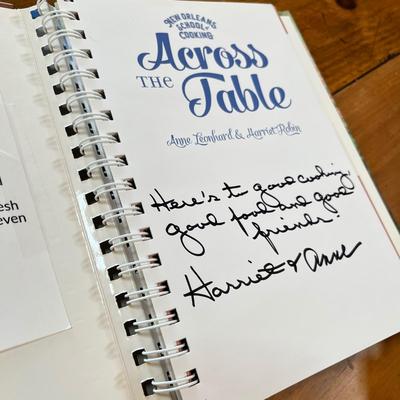 NEW ORLEANS
SCHOOL of
COOKING
Across
THE Table
Anne Leonhard & Harriet Robin
Here's to good cooking,
good food and good
friends!
Harriet & Anne
esh
even